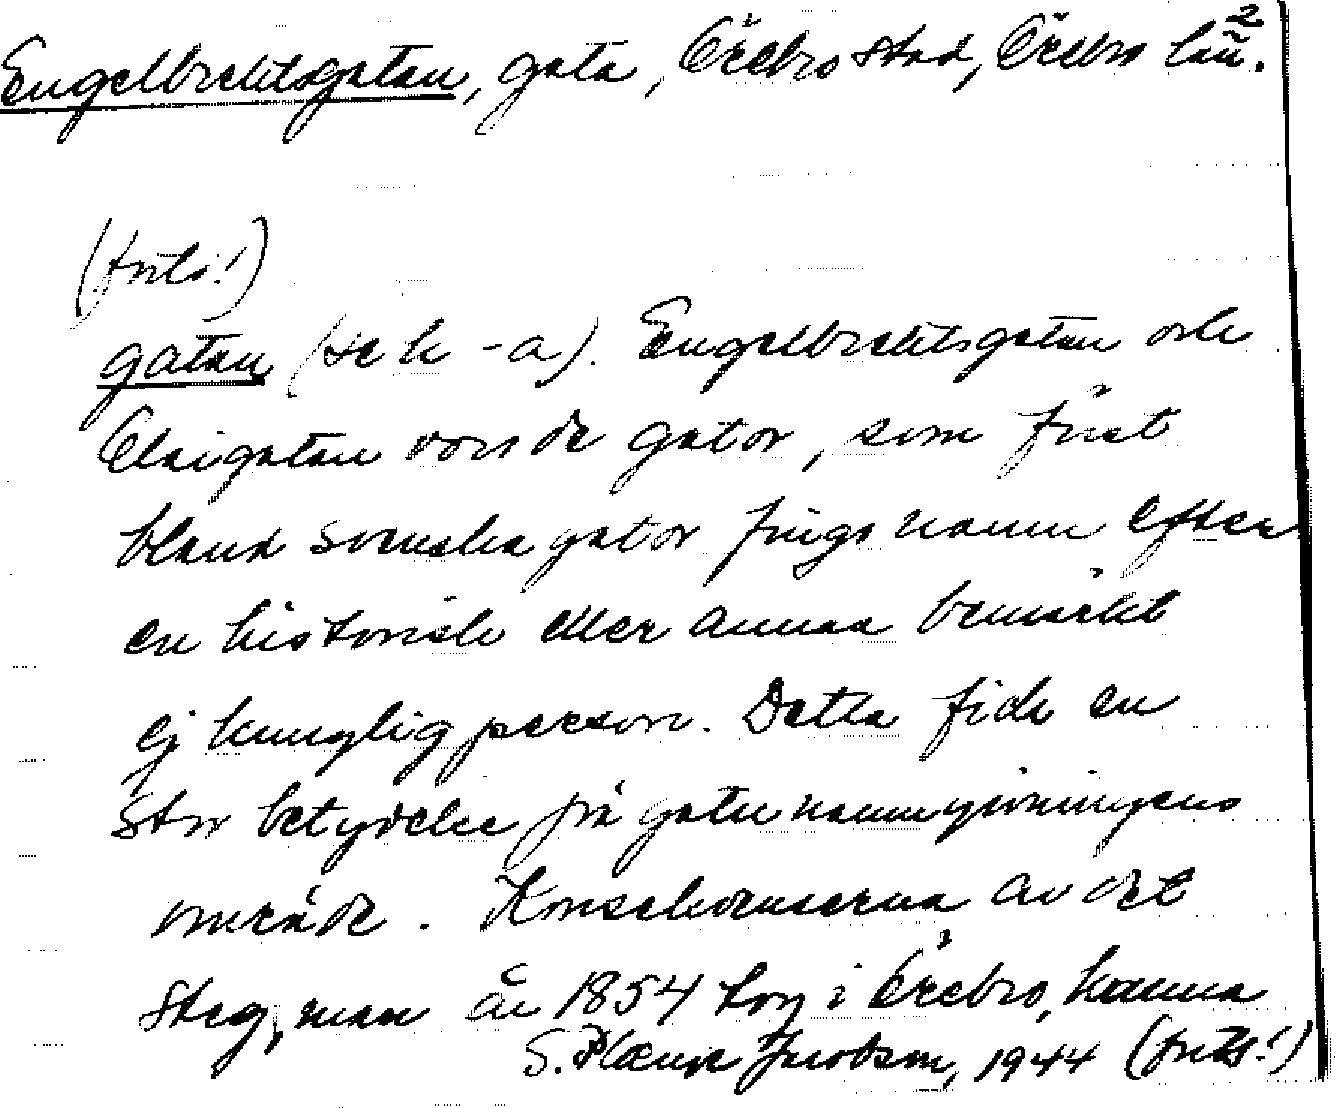 Engelbrektsgatan, gata, Örebro stad, Örebro län. 2
(forts.!)
gatan (se k -a). Engelbrektsgatan och
Olaigatan voro de gator, som först
bland svenska gator fingo namn efter
en historisk eller annan bemärkt
ej kunglig person. Detta fick en
stor betydelse på gatunamngivningens
område. Konsekvenserna av det
steg, man år 1854 tog i Örebro, kunna
S. Jacobson, 1944 (forts.!)